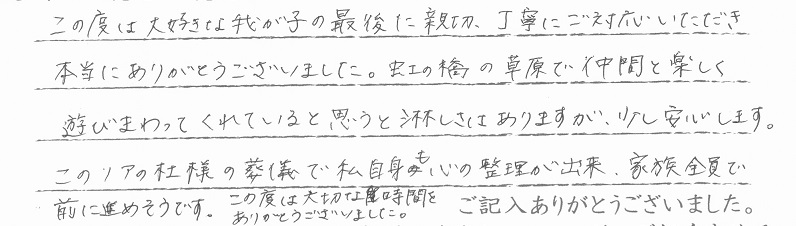 この度は大好きな我が子の最後に親切、丁寧にご対応いただき
本当にありがとうございました。虹の橋の草原で仲間と楽しく
遊びまわってくれていると思うと淋しさはありますが、少し安心します。
このリアの杜様の葬儀で私自身も心の整理が出来、家族全員で
前に進めそうです。この度は大切な時間を
ありがとうございました。
ご記入ありがとうございました。